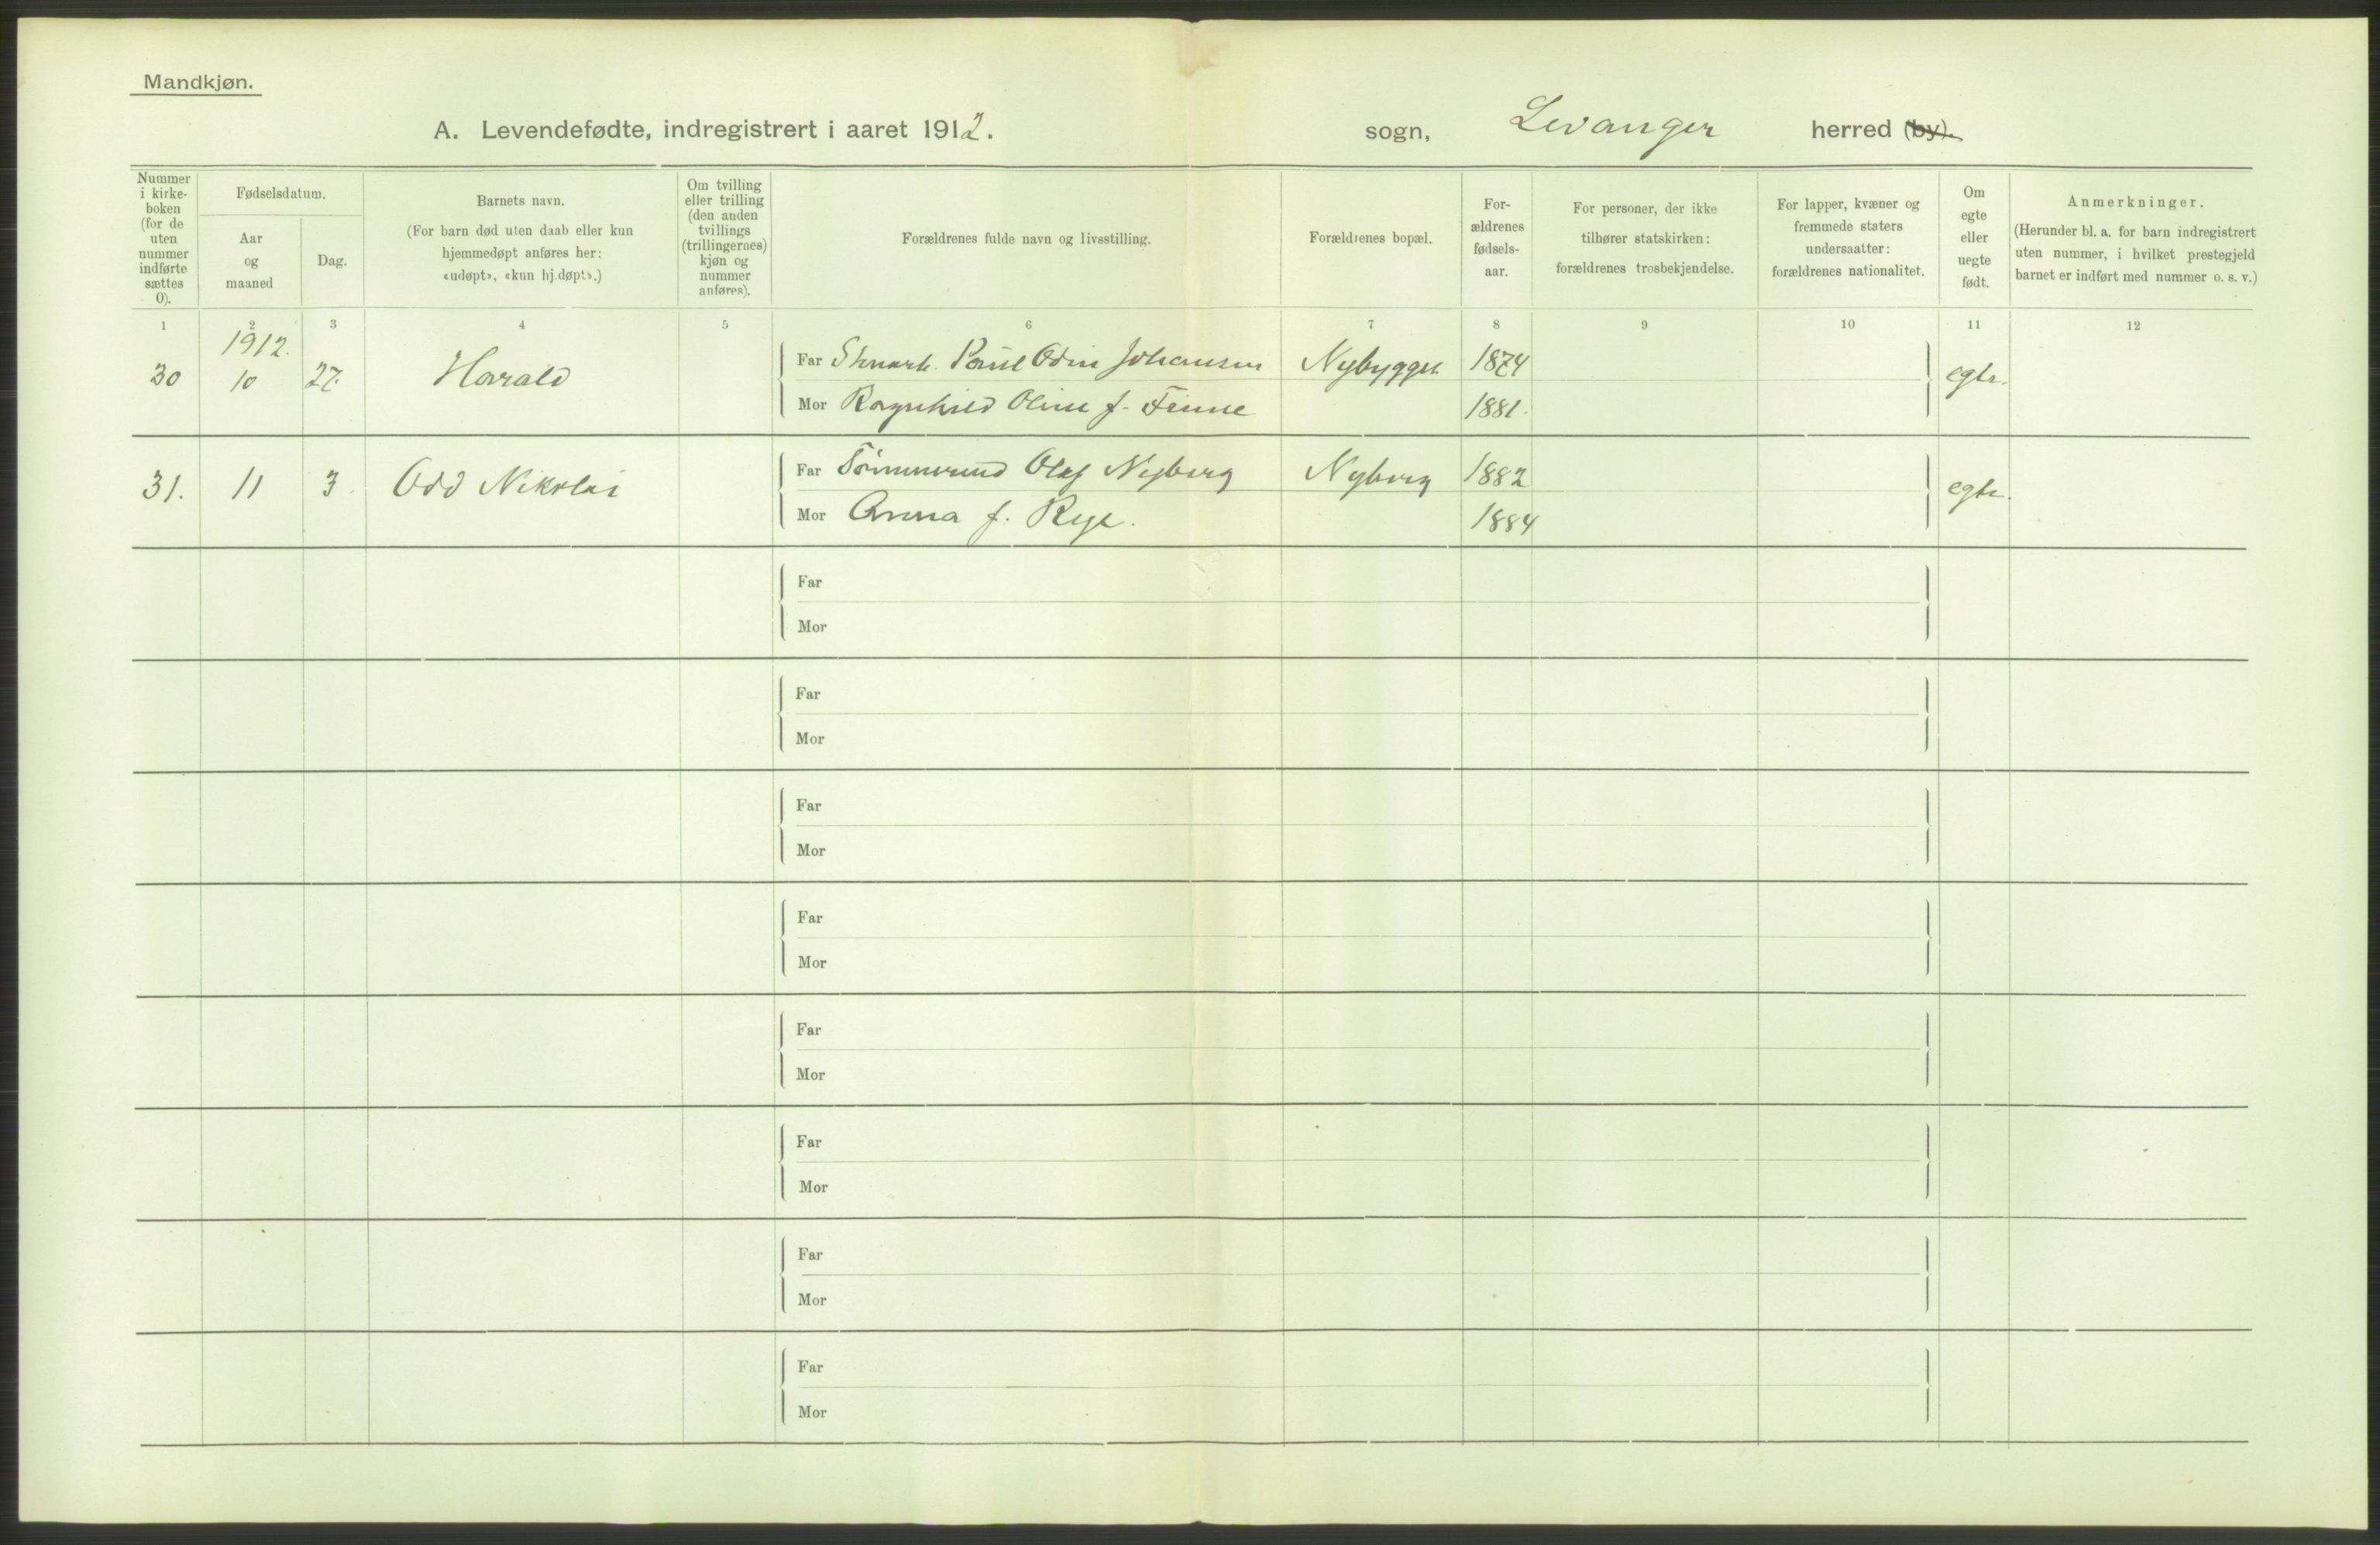 Mandkjøn.
A. Levendefødte, indregistrert i aaret 1912.
sogn, Levanger herred (by).
Nummer i kirke-boken (for de uten nummer indførte sættes 0).
Fødselsdatum.
Aar og maaned
Dag.
Barnets navn.
(For barn død uten daab eller kun hjemmedøpt anføres her: «udøpt», «kun hj.døpt».)
Om tvilling eller trilling (den anden tvillings (trillingernes) kjøn og nummer anføres).
Forældrenes fulde navn og livsstilling.
Forældrenes bopæl.
For-ældrenes fødsels-aar.
For personer, der ikke tilhører statskirken: forældrenes trosbekjendelse.
For lapper, kvæner og fremmede staters undersaatter: forældrenes nationalitet.
Om egte eller uegte født.
Anmerkninger.
(Herunder bl. a. for barn indregistrert uten nummer, i hvilket prestegjeld barnet er indført med nummer o. s. v.)
1 2 3 4 5 6 7 8 9 10 11 12
1912.
30 10 27. Harald Far Paul Odin Johansen 1874 egte.
Mor Ragnhild Oline f. Finne 1881.
31. 11 3. Odd Nikolai Far Olaf Nyborg Nyborg 1882 egte.
Mor Anna f. Rye. 1884
Far
Mor
Far
Mor
Far
Mor
Far
Mor
Far
Mor
Far
Mor
Far
Mor
Far
Mor